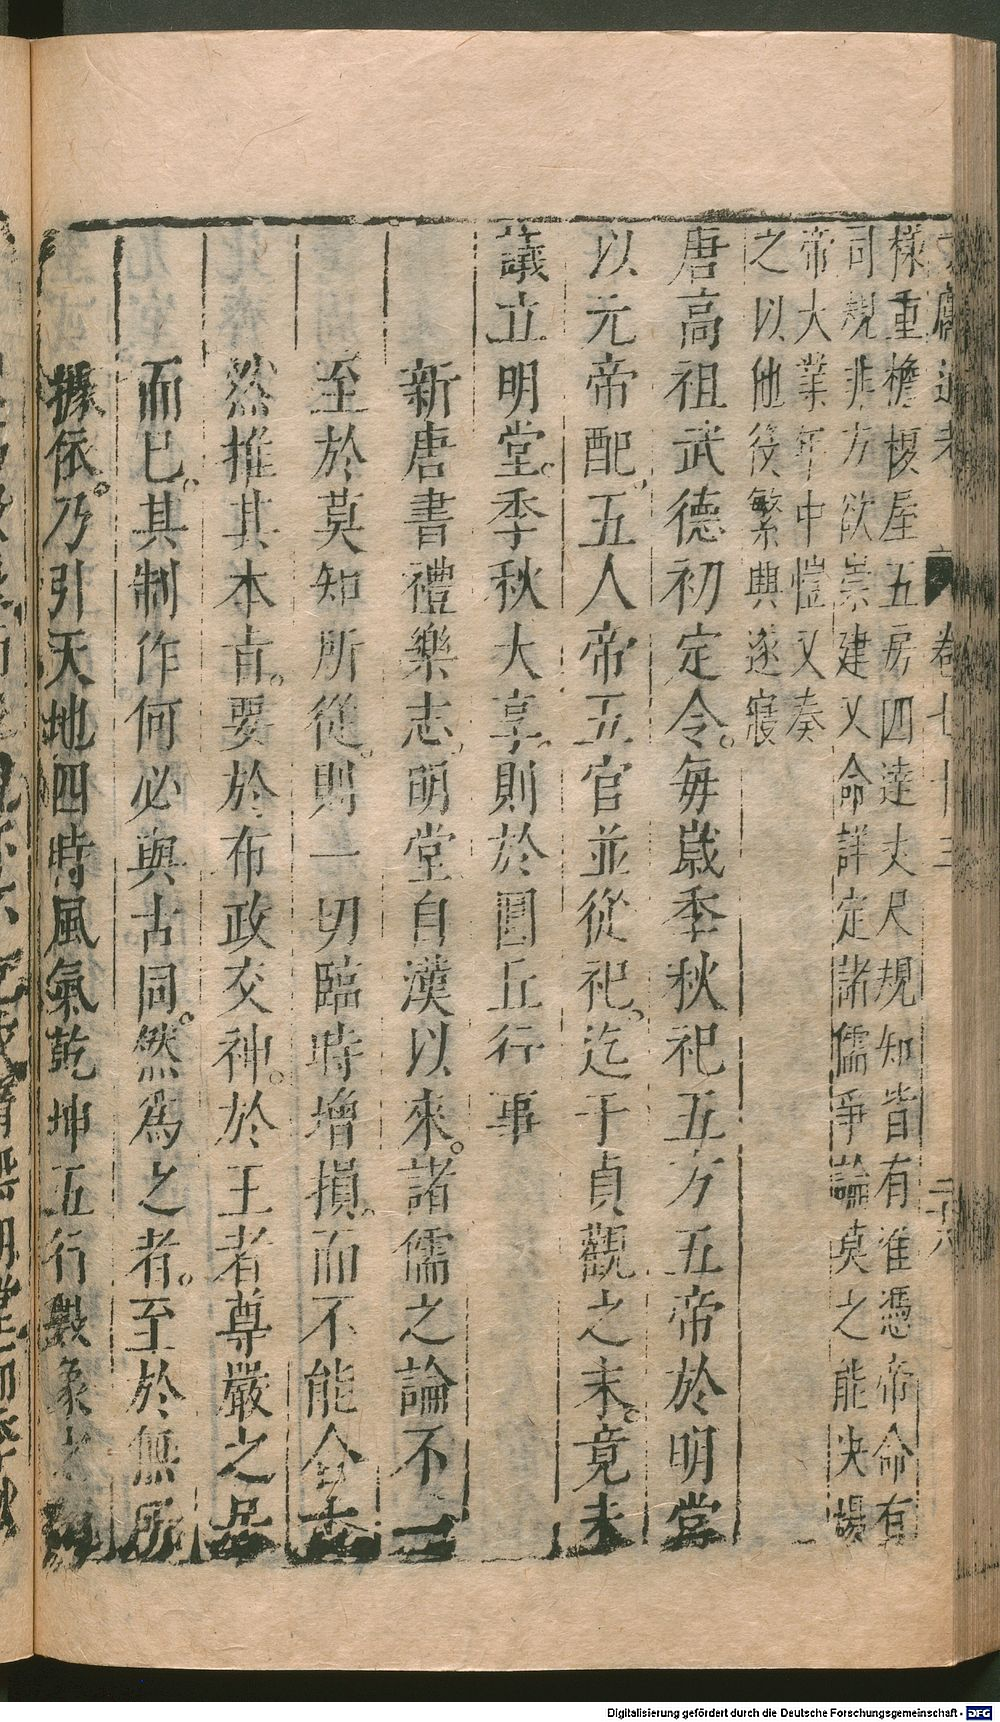 卷七十三
二十八
樣重檐複屋五房四達丈尺規知皆有准憑帝命有
司規非方欲崇建又命詳定諸儒爭論莫之能决場
帝大業年中愷又奏
之以他役繁興遂寢
唐高祖武德初定令。每歲季秋祀五方五帝於明堂
以元帝配。五人帝五官並從祀。迄于貞觀之末。竟未
議立明堂。季秋大享。則於圜丘行事
新唐書禮樂志。明堂自漢以來。諸儒之論不一
至於莫知所從。則一切臨時增損。而不能合古
然推其本旨。要於布政交神。於王者尊嚴之居
而已。其制作何必與古同。然爲之者。至於無所
據依。乃引天地四時風氣乾坤五行數象之
Digitalisierung gefördert durch die Deutsche Forschungsgemeinschaft - DFG